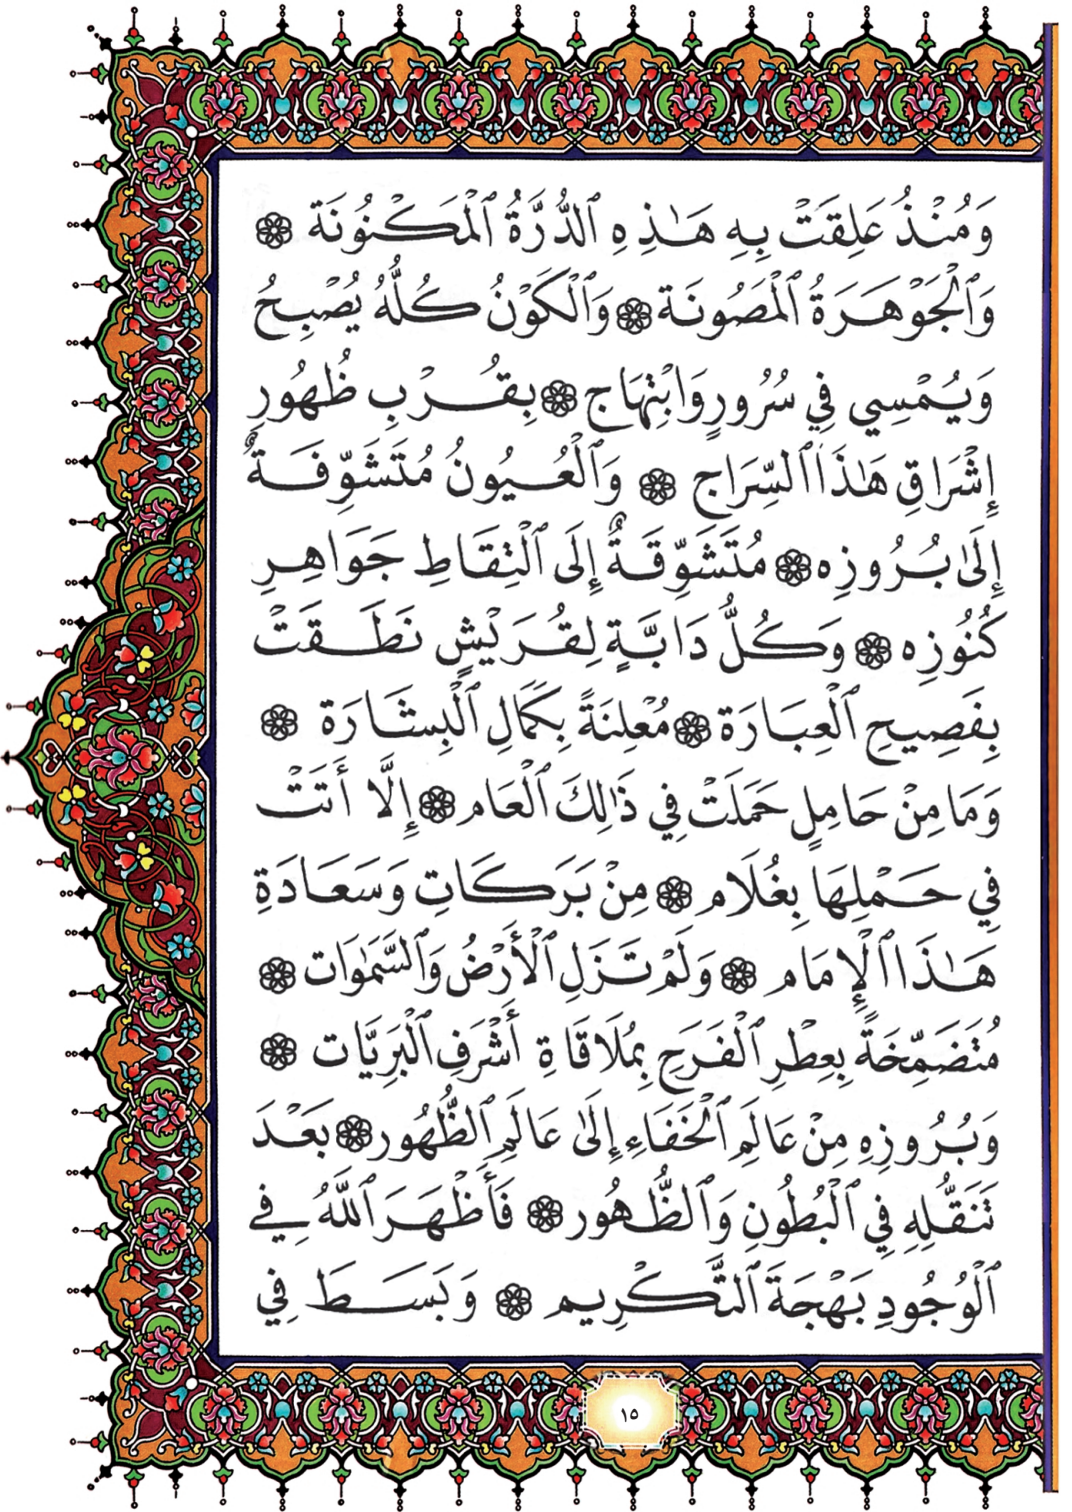 وَمُنْذُ عَلِقَتْ بِهِ هَـٰذِهِ ٱلدُّرَّةُ ٱلْمَكْنُونَة ۞
وَٱلْجَوْهَرَةُ ٱلْمَصُونَة ۞ وَٱلْكَوْنُ كُلُّهُ يُصْبِحُ
وَيُمْسِي فِي سُرُورٍ وَابْتِهَاج ۞ بِقُرْبِ ظُهُورِ
إِشْرَاقِ هَـٰذَا ٱلسِّرَاج ۞ وَٱلْعُيُونُ مُتَشَوِّفَةٌ
إِلَىٰ بُرُوزِه ۞ مُتَشَوِّقَةٌ إِلَى ٱلْتِقَاطِ جَوَاهِرِ
كُنُوزِه ۞ وَكُلُّ دَابَّةٍ لِقُرَيْشٍ نَطَقَتْ
بِفَصِيحِ ٱلْعِبَارَة ۞ مُعْلِنَةً بِكَمَالِ ٱلْبِشَارَة ۞
وَمَا مِنْ حَامِلٍ حَمَلَتْ فِي ذَٰلِكَ ٱلْعَام ۞ إِلَّا أَتَتْ
فِي حَمْلِهَا بِغُلَام ۞ مِنْ بَرَكَاتِ وَسَعَادَةِ
هَـٰذَا ٱلْإِمَام ۞ وَلَمْ تَزَلِ ٱلْأَرْضُ وَٱلسَّمَٰوَات ۞
مُتَضَمِّخَةً بِعِطْرِ ٱلْفَرَحِ بِمُلَاقَاةِ أَشْرَفِ ٱلْبَرِيَّات ۞
وَبُرُوزِهِ مِنْ عَالَمِ ٱلْخَفَاءِ إِلَىٰ عَالَمِ ٱلظُّهُور ۞ بَعْدَ
تَنَقُّلِهِ فِي ٱلْبُطُونِ وَٱلظُّهُور ۞ فَأَظْهَرَ ٱللَّهُ فِي
ٱلْوُجُودِ بَهْجَةَ ٱلتَّكْرِيم ۞ وَبَسَطَ فِي
١٥